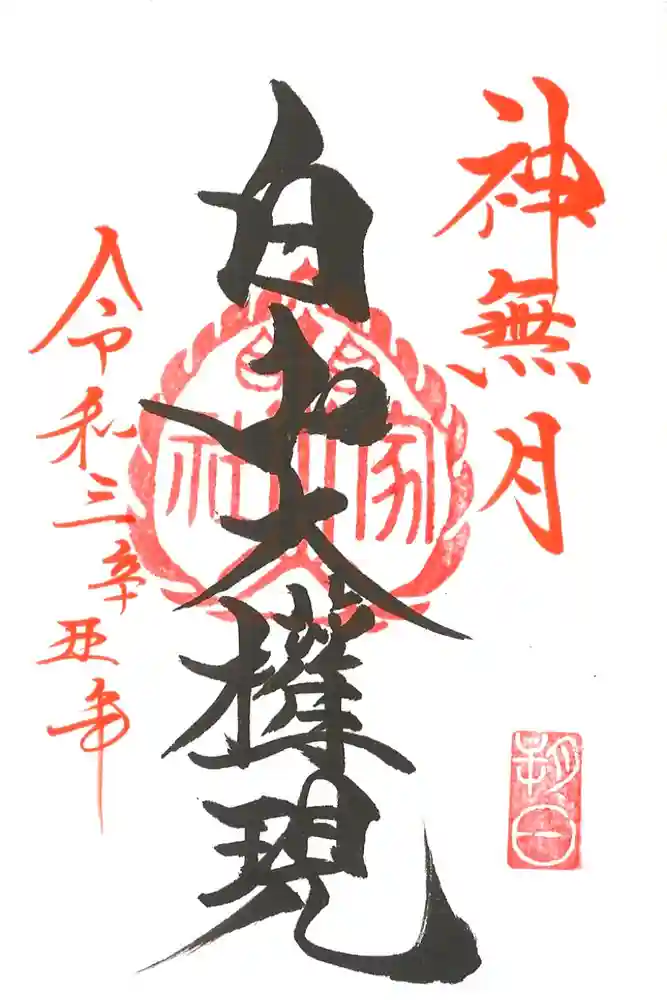 神無月
白大権現
令和三辛丑年
朔日